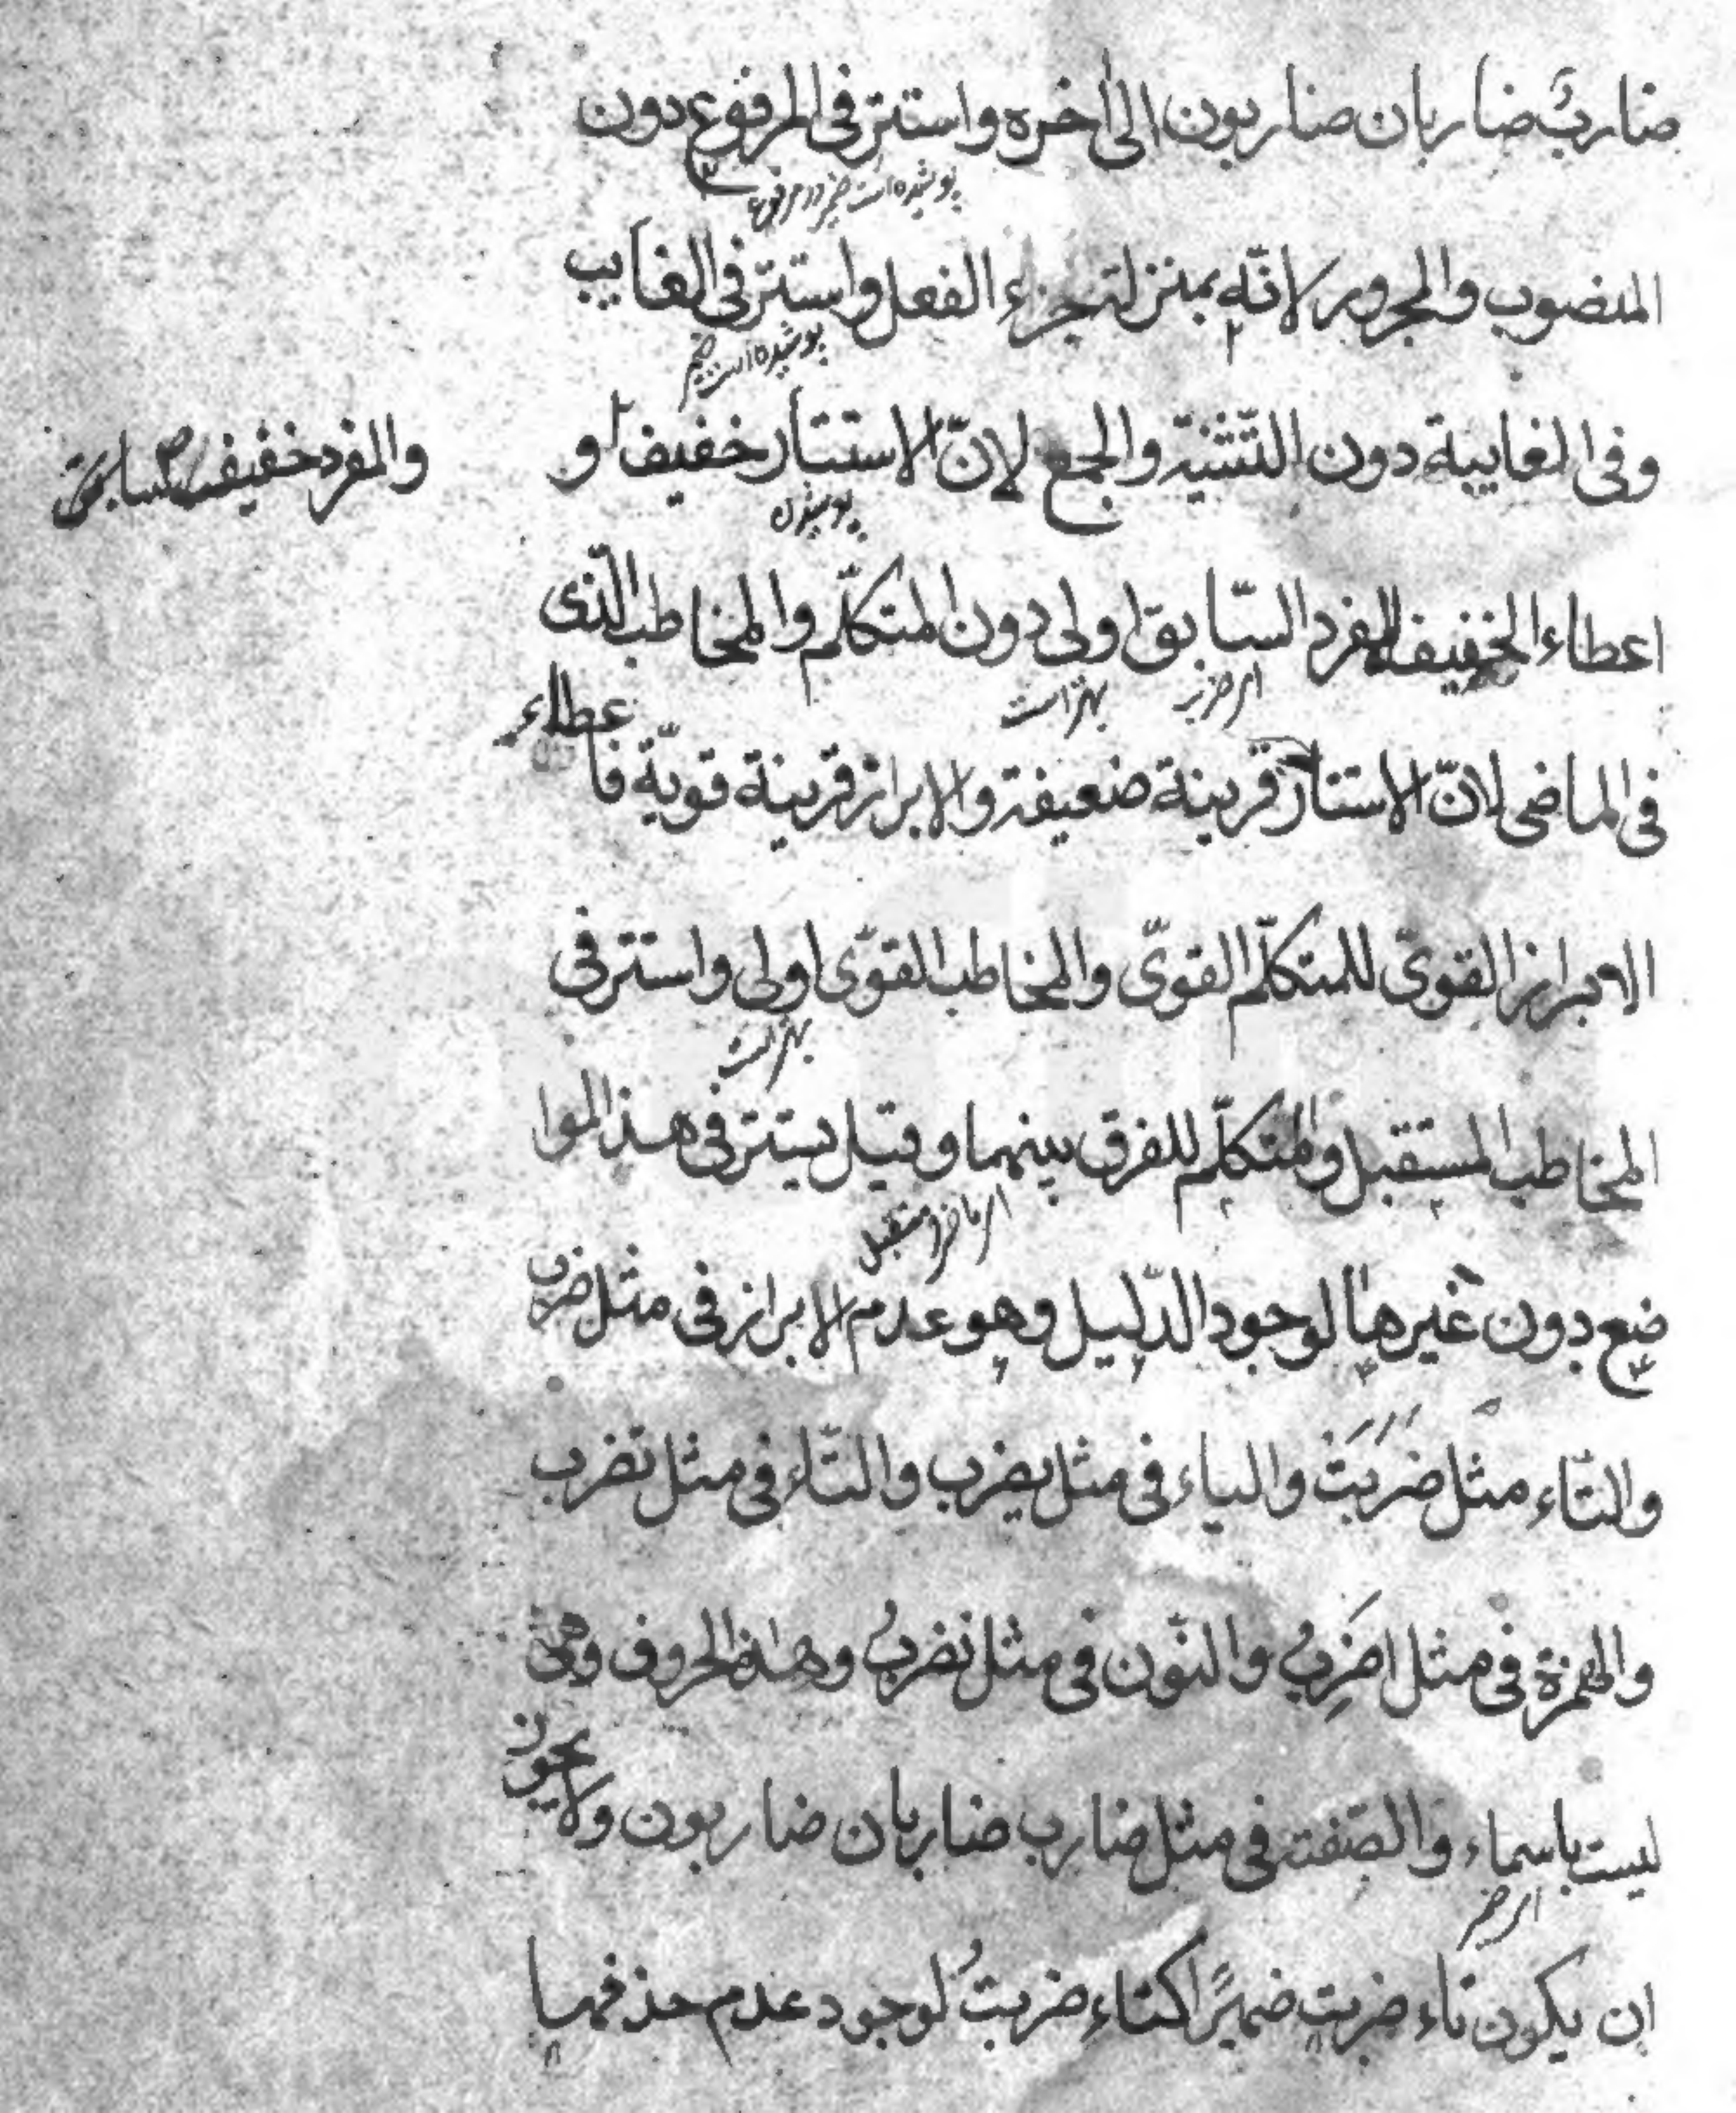 ضاربٌ ضاربان ضاربون الى اخره واستتر فى المرفوع دون
پوشیده است ضمیر در مرفوع
المنصوب والمجرور لانّه بمنزلة جزء الفعل واستتر فى الغايب
پوشیده است ضمیر
وفى الغايبة دون التّثنية والجمع لانّ الاستتار خفيف و
والمفرد خفيف سابق
پوشیدن
اعطاء الخفيف المفرد السّابق اولى دون المتكلّم والمخاطب الّذى
بهتر است
فى الماضى لانّ الاستتار قرينة ضعيفة والابراز قرينة قويّة فاعطاء
الابراز القوىّ للمتكلّم القوىّ والمخاطب القوّى اولى واستتر فى
بهتر است
المخاطب المستقبل والمتكلّم للفرق بينهما وقيل يستتر فى هذ الموا
ضع دون غيرها لوجود الدّليل وهو عدم الابراز فى مثل ضرب
والتّاء مثل ضَرَبَتْ والياء فى مثل يضرب والتّاء فى مثل تضرب
والهمزة فى مثل اضَرِبُ والنّون فى مثل نضربُ وهذه الحروف وهى
ليست باسماء والصّفة فى مثل ضارب ضاربان ضاربون ولا يجوز
ان يكون تاء ضربت ضميرًا كتاء ضربتُ لوجود عدم حذفها